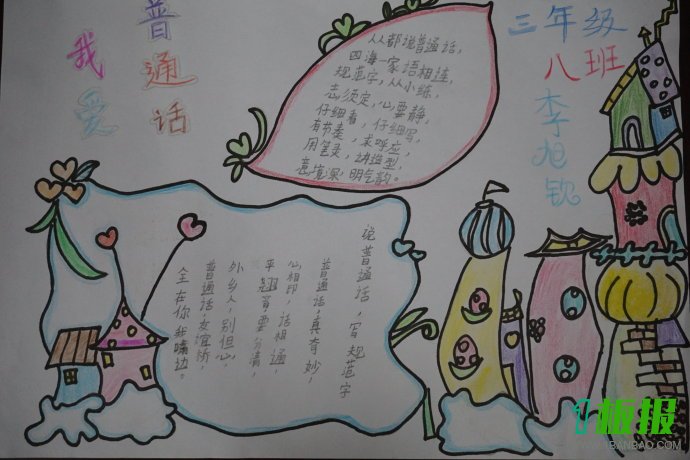 我爱
普通话
三年级
八班
李旭钦
从都说普通话，
四海一家语相连，
规范字，从小练，
志须定，心要静，
仔细看，仔细写，
有节奏，求呼应，
用笔灵，功造型，
意境深，明气韵。
说普通话，写规范字
普通话，真奇妙，
心相印，话相通，
平翘音要分清，
外乡人，别但心，
普通话友谊桥，
全在你我嘴边。
1板报
1BANBAO.COM